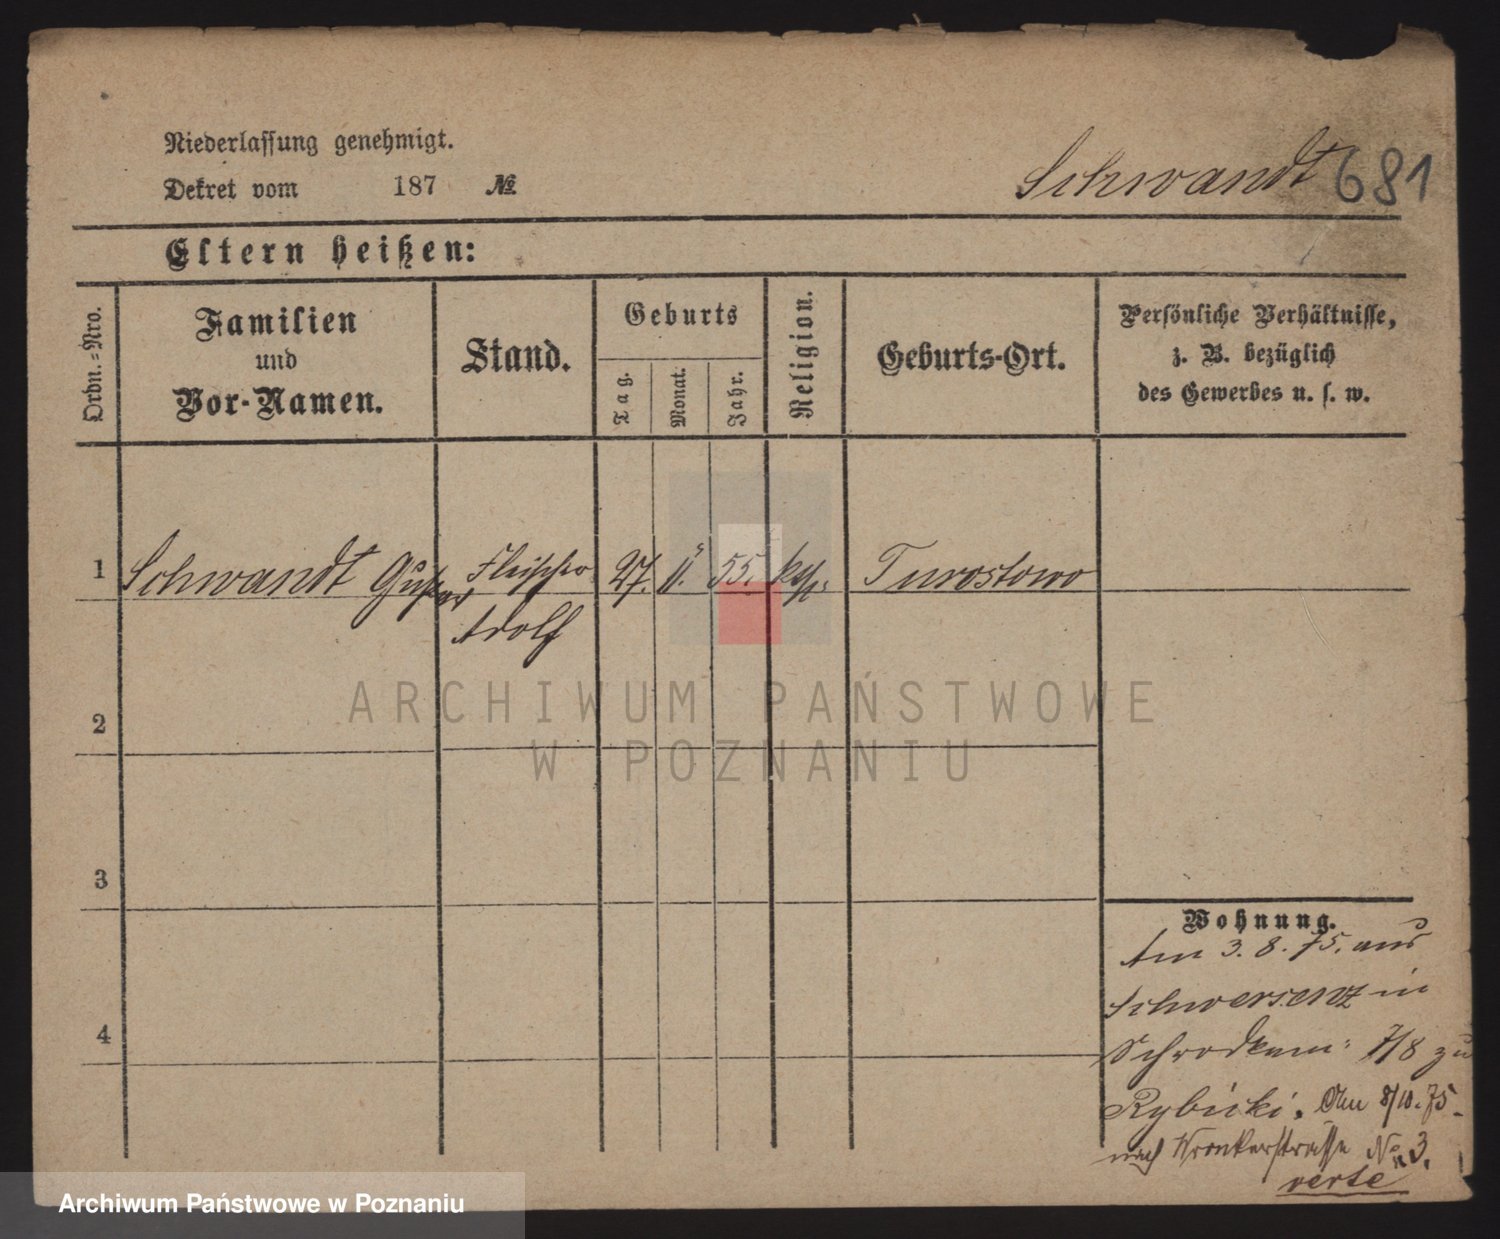 Niederlassung genehmigt.
Dekret vom 187 №
Schwandt 681
Eltern heißen:
Ordn.-Nro.
Familien
und
Vor-Namen.
Stand.
Geburts
Tag.
Monat.
Jahr.
Religion.
Geburts-Ort.
Persönliche Verhältnisse,
z. B. bezüglich
des Gewerbes u. s. w.
1 Schwandt Gustav Fleischer 27. 11. 55. Turostowo
Adolf
2
3
4
Wohnung.
Am 3. 8. 75. aus
Schwersenz in
Schrodkam: 7/8 zu
Rybicki. Am 8/10. 75
nach Wronkerstrasse No 3.
verte
ARCHIWUM PAŃSTWOWE
W POZNANIU
Archiwum Państwowe w Poznaniu